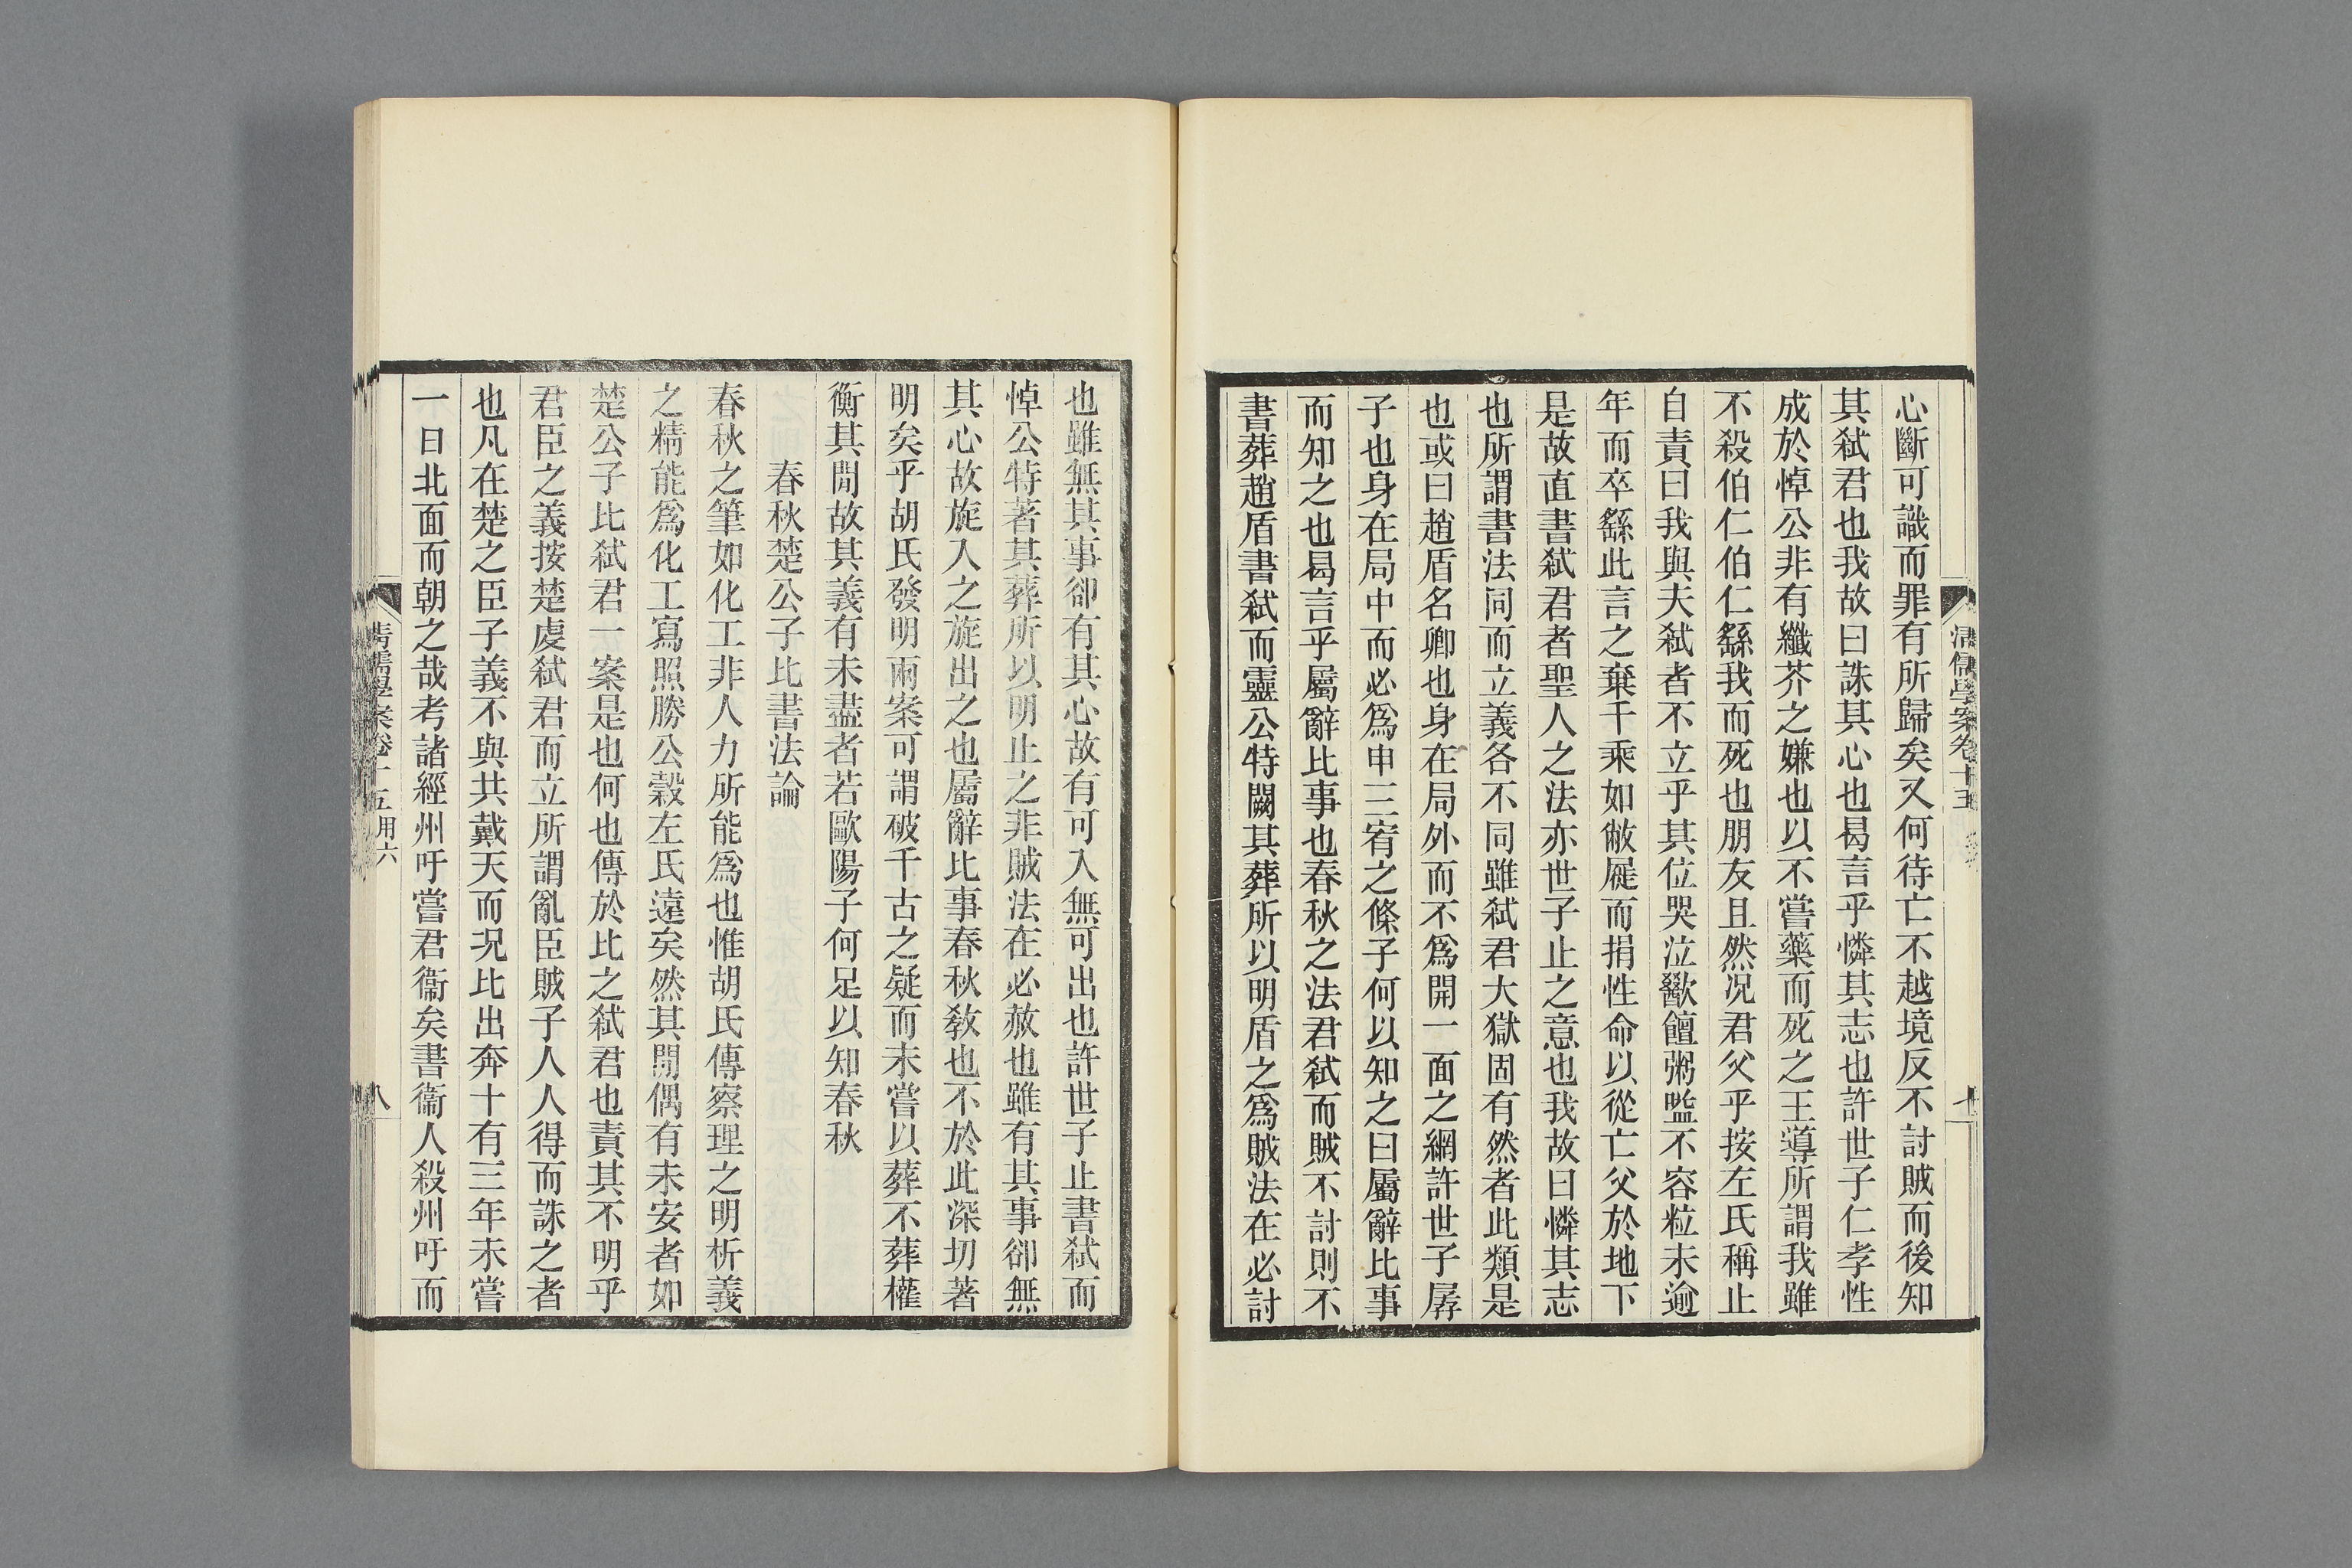 心斷可識而罪有所歸矣又何待亡不越境反不討賊而後知
其弒君也我故曰誅其心也曷言乎憐其志也許世子仁孝性
成於悼公非有纖芥之嫌也以不嘗藥而死之王導所謂我雖
不殺伯仁伯仁繇我而死也朋友且然况君父乎按左氏稱止
自責曰我與夫弒者不立乎其位哭泣歠饘粥嗌不容粒未逾
年而卒繇此言之棄千乘如敝屣而捐性命以從亡父於地下
是故直書弒君者聖人之法亦世子止之意也我故曰憐其志
也所謂書法同而立義各不同雖弒君大獄固有然者此類是
也或曰趙盾名卿也身在局外而不爲開一面之網許世子孱
子也身在局中而必爲申三宥之條子何以知之曰屬辭比事
而知之也曷言乎屬辭比事也春秋之法君弒而賊不討則不
書葬趙盾書弒而靈公特闕其葬所以明盾之爲賊法在必討
也雖無其事卻有其心故有可入無可出也許世子止書弒而
悼公特著其葬所以明止之非賊法在必赦也雖有其事卻無
其心故旋入之旋出之也屬辭比事春秋敎也不於此深切著
明矣乎胡氏發明兩案可謂破千古之疑而未嘗以葬不葬權
衡其閒故其義有未盡者若歐陽子何足以知春秋
春秋楚公子比書法論
春秋之筆如化工非人力所能爲也惟胡氏傳察理之明析義
之精能爲化工寫照勝公穀左氏遠矣然其閒偶有未安者如
楚公子比弒君一案是也何也傳於比之弒君也責其不明乎
君臣之義按楚虔弒君而立所謂亂臣賊子人人得而誅之者
也凡在楚之臣子義不與共戴天而况比出奔十有三年未嘗
一日北面而朝之哉考諸經州吁嘗君衞矣書衞人殺州吁而
清儒學案卷十五 用六
八